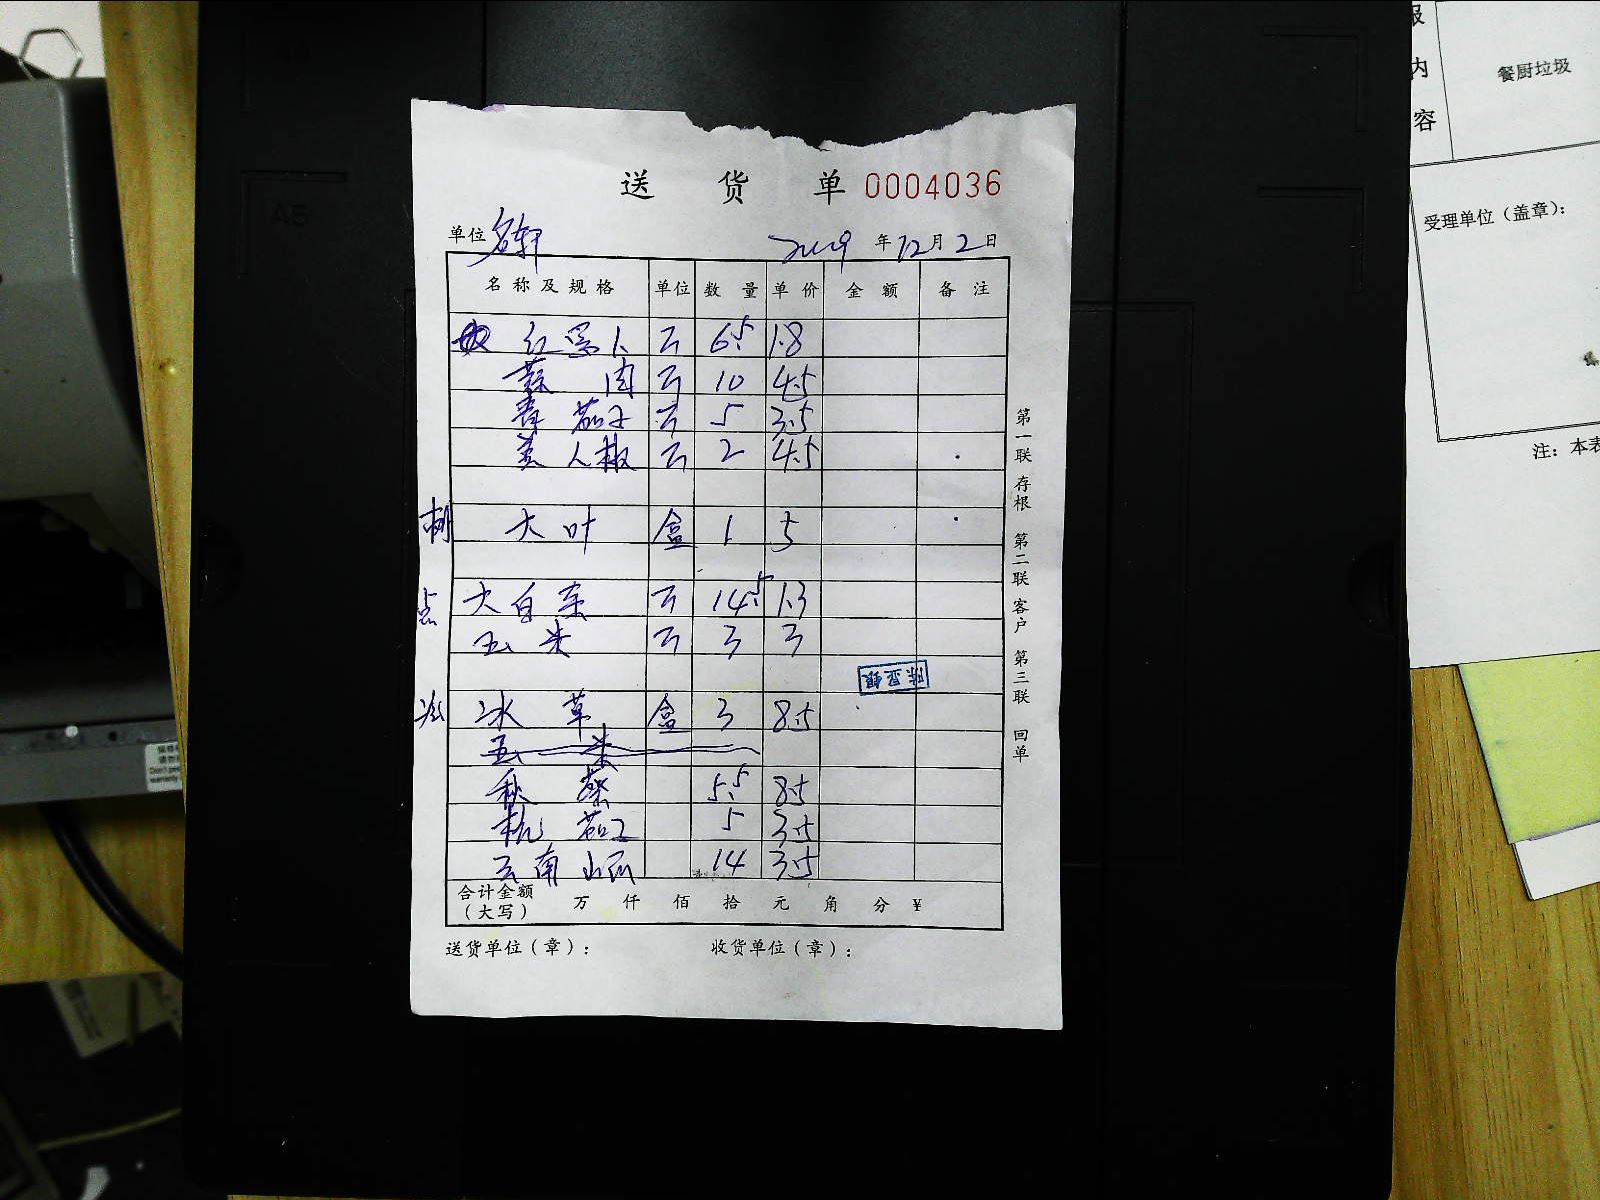 送 货 单 0004036
单位 名轩 2019 年 12 月 2 日
名称及规格 单位 数量 单价 金额 备注
红罗卜 斤 6.5 1.8
蒜肉 斤 10 4.5
青茄子 斤 5 3.5
美人椒 斤 2 4.5
大叶 盒 1 5
点 大白菜 斤 14.5 1.3
玉米 斤 3 3
冰草 盒 3 8.5
玉米
秋葵 5.5 8.5
杭茄子 5 3.5
云南小瓜 14 3.5
合计金额(大写) 万 仟 佰 拾 元 角 分 ¥
送货单位(章): 收货单位(章):
第一联 存根 第二联 客户 第三联 回单
服
内
容
餐厨垃圾
受理单位(盖章):
注:本表
A5